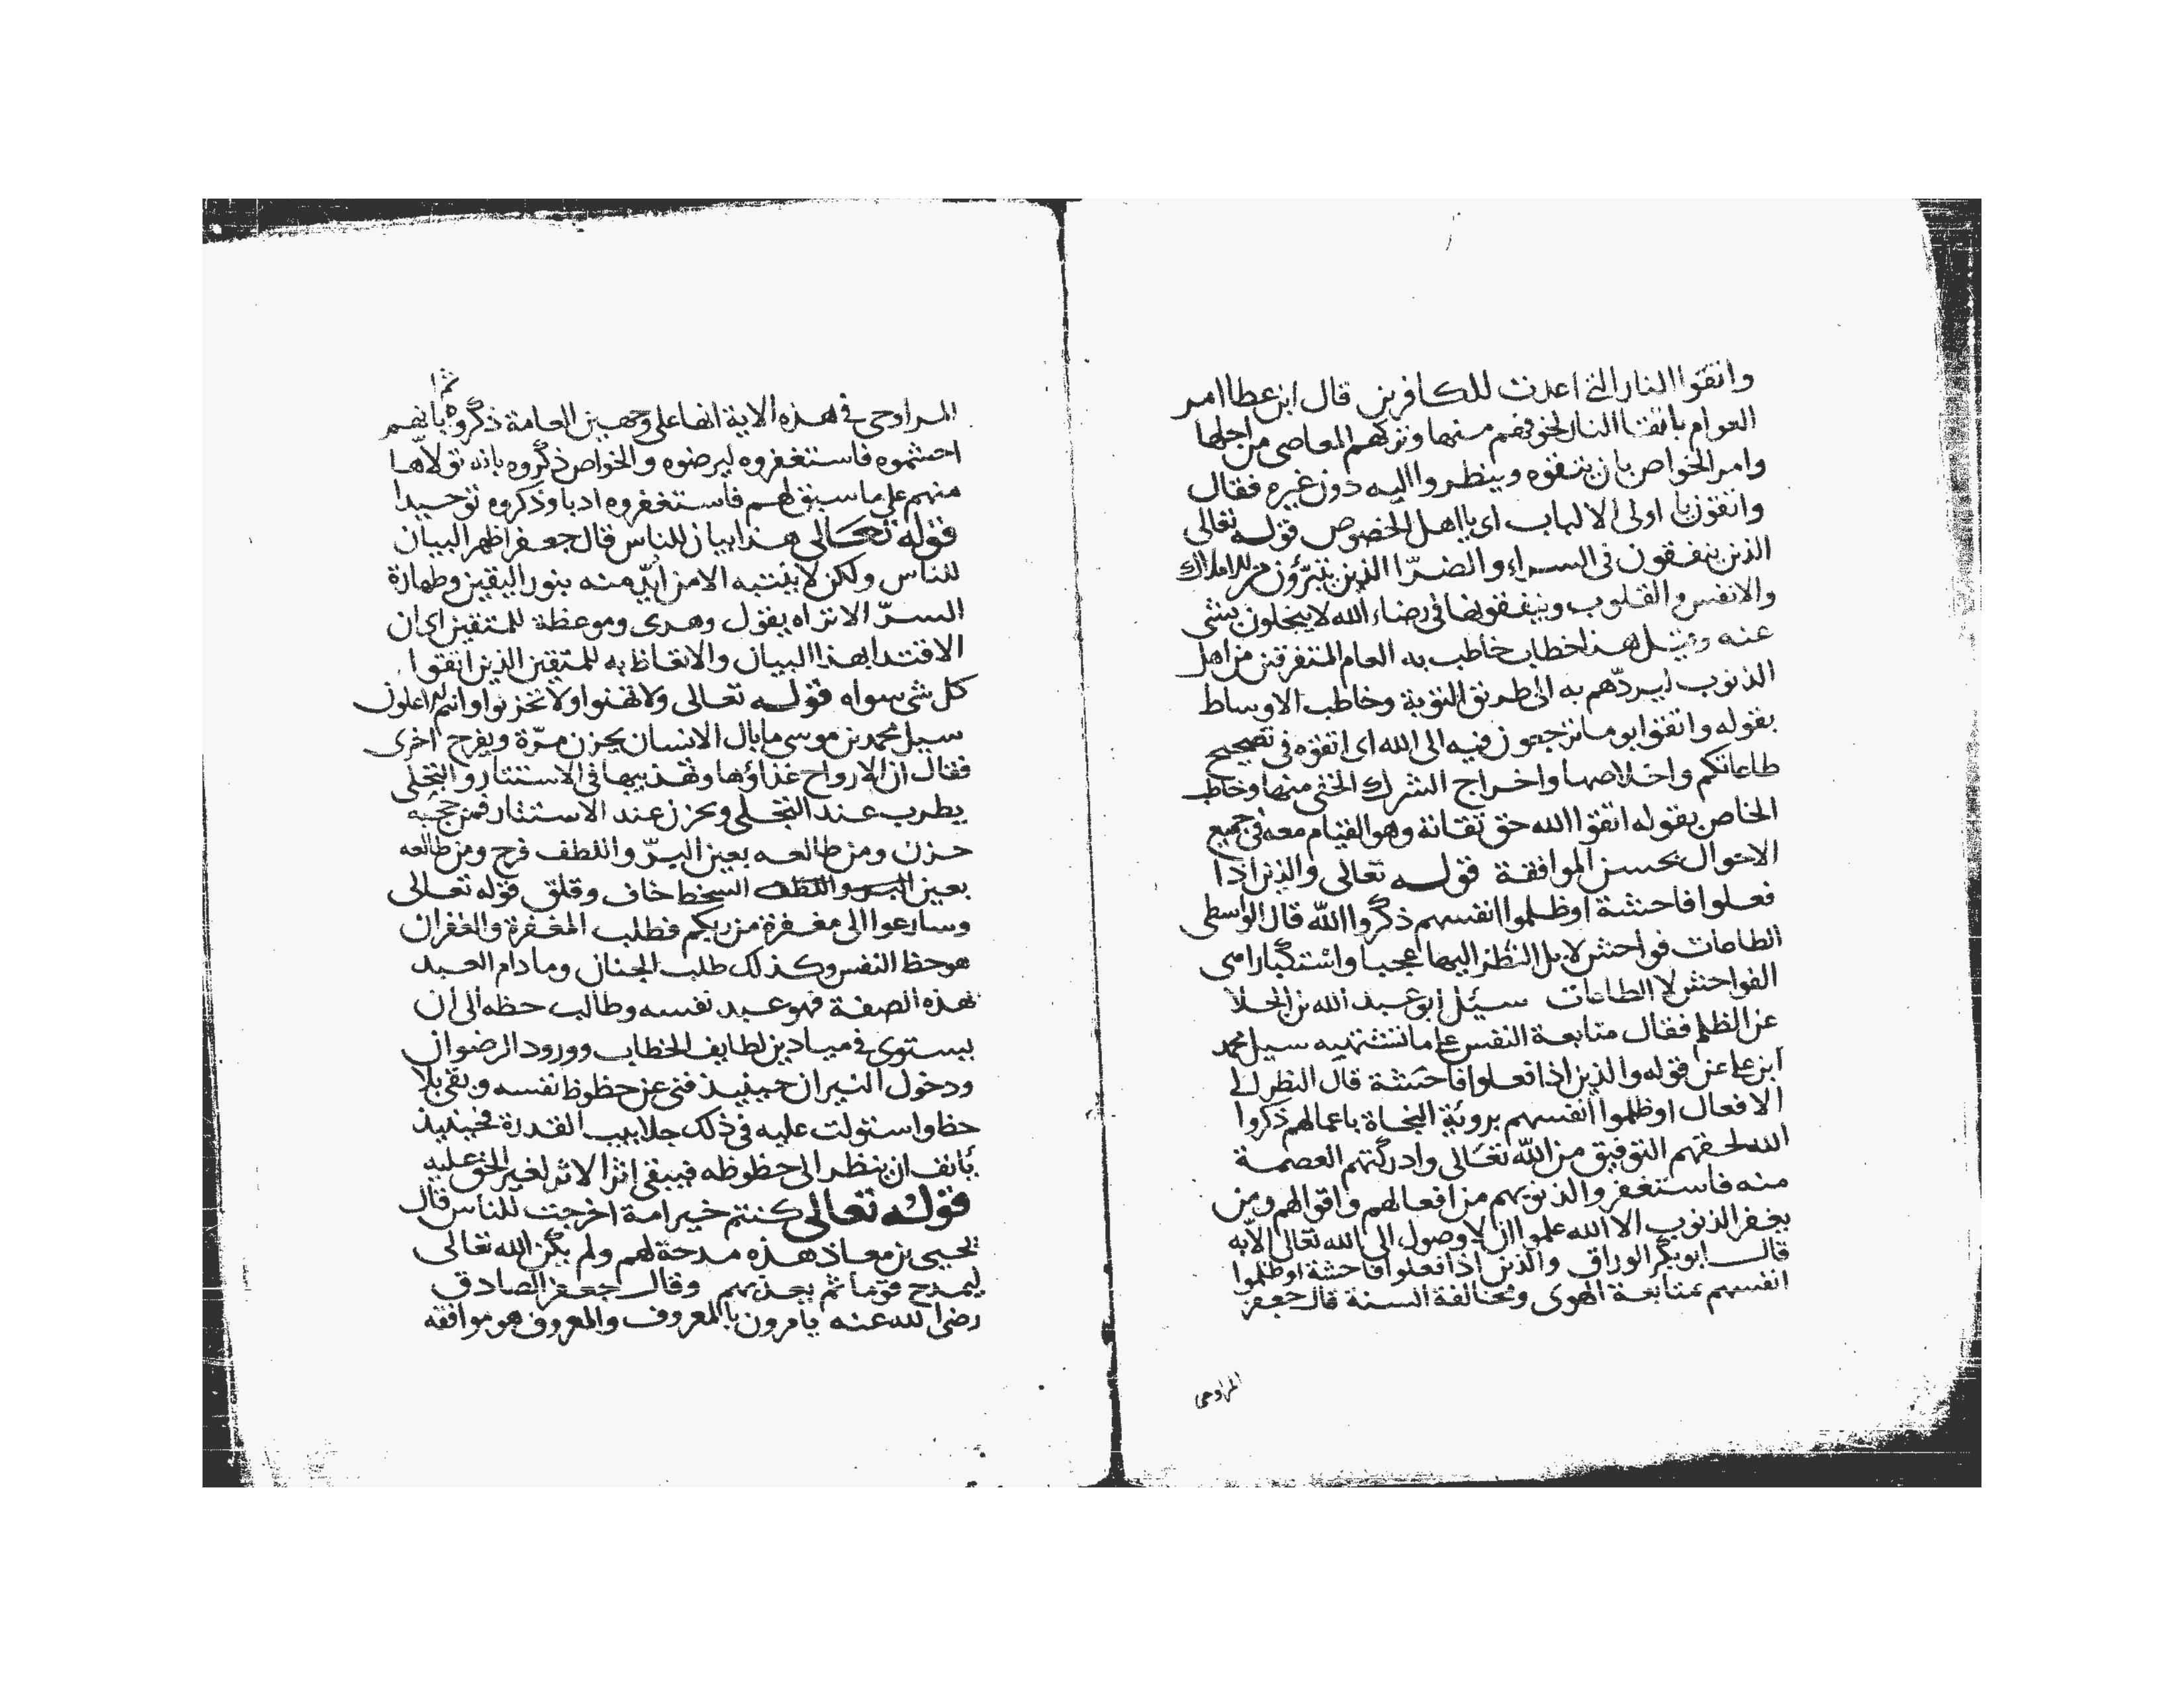 واتقوا النار التي اعدت للكافرين قال ابن عطا امر
العوام باتقا النار لخوفهم منها وتركهم المعاصي من اجلها
وامر الخواص بان يتقوه وينظروا اليه دون غيره فقال
واتقون يا اولى الالباب اي يا اهل الخصوص قوله تعالى
الذين ينفقون في السراء والضرّا الذين يتبرّؤن من الاملاك
والانفس والقلوب وينفقونها في رضاء الله لا يبخلون بشى
عنه ومثل هذا خطاب خاطب به العام المتفرقين من اهل
الذنوب ليردّهم به الى طريق التوبة وخاطب الاوساط
بقوله واتقوا يوما ترجعون فيه الى الله اى اتقوه في تصحيح
طاعاتكم واخلاصها واخراج الشرك الخفى منها وخاطب
الخاص بقوله اتقوا الله حق تقاته وهو القيام معه في جميع
الاحوال بحسن الموافقة قوله تعالى والذين اذا
فعلوا فاحشة او ظلموا انفسهم ذكروا الله قال الواسطى
الطاعات فواحش لا بل النظر اليها عجبا واستكبارا هي
الفواحش لا الطاعات سئل ابو عبد الله بن الجلا
عن الظلم فقال متابعة النفس على ما تشتهيه سيل محمد
ابن على عن قوله والذين اذا فعلوا فاحشة قال النظر الى
الافعال او ظلموا انفسهم برؤية النجاة باعمالهم ذكروا
الله لحقهم التوفيق من الله تعالى وادركتهم العصمة
منه فاستغفروا لذنوبهم من افعالهم واقوالهم ومن
يغفر الذنوب الا الله علموا ان لا وصول الى الله تعالى الا به
قال ابو بكر الوراق والذين اذا فعلوا فاحشة او ظلموا
انفسهم بمتابعة الهوى ومخالفة السنة قال جعفر
المراوحى
المراوحى في هذه الاية انها على وجهين العامة ذكروه بانهم
احشموه فاستغفروه ليرضوه والخواص ذكروه بانه تولاها
منهم على ما سبق لهم فاستغفروه ادبا وذكروه توحيدا
قوله تعالى هذا بيان للناس قال جعفر اظهر البيان
للناس ولكن لا ينتبه الا من ايّد منه بنور اليقين وطهارة
السرّ الا تراه يقول وهدى وموعظة للمتقين اى ان
الاقتدا بهذا البيان والاتعاظ به للمتقين الذين اتقوا
كل شى سواه قوله تعالى ولا تهنوا ولا تحزنوا وانتم الاعلون
سيل محمد بن موسى ما بال الانسان يحزن مرّة ويفرح اخرى
فقال ان الارواح غذاؤها وتهذيبها في الاستتار والتجلى
يطرب عند التجلى ويحزن عند الاستتار فمن حجبه
حزن ومن طالعه بعين البرّ واللطف فرح ومن طالعه
بعين البر واللطف السخط خاف وقلق قوله تعالى
وسارعوا الى مغفرة من ربكم فطلب المغفرة والغفران
هو حظ النفس وكذلك طلب الجنان وما دام العبد
بهذه الصفة فهو عبد نفسه وطالب حظه الى ان
يستوى في ميادين لطايف الخطاب وورود الرضوان
ودخول النيران حينيذ فنى عن حظوظ نفسه وبقى بلا
حظ واستولت عليه في ذلك جلابيب القدرة فحينيذ
يانف ان ينظر الى حظوظه فيبقى اثر الاثر لغير الحق عليه
قوله تعالى كنتم خير امة اخرجت للناس قال
يحيى بن معاذ هذه مدحة لهم ولم يكن الله تعالى
ليمدح قوما ثم يعذبهم وقال جعفر الصادق
رضى الله عنه يامرون بالمعروف والمعروف هو موافقه